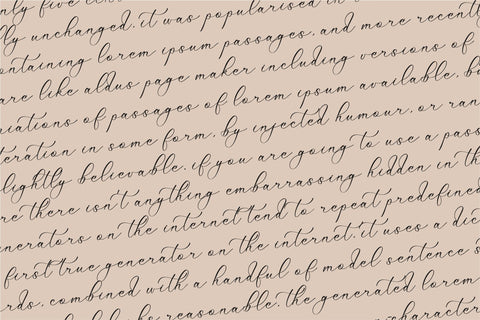 only five cent
lly unchanged. it was popularised in
ontaining lorem ipsum passages, and more recently
are like aldus page maker including versions of
iations of passages of lorem ipsum available, bu
teration in some form, by injected humour, or ran
lightly believable. if you are going to use a pass
re there isn't anything embarrassing hidden in th
enerators on the internet tend to repeat predefined
first true generator on the internet. it uses a dic
rds, combined with a handful of model sentence s
reasonable. the generated lorem
character